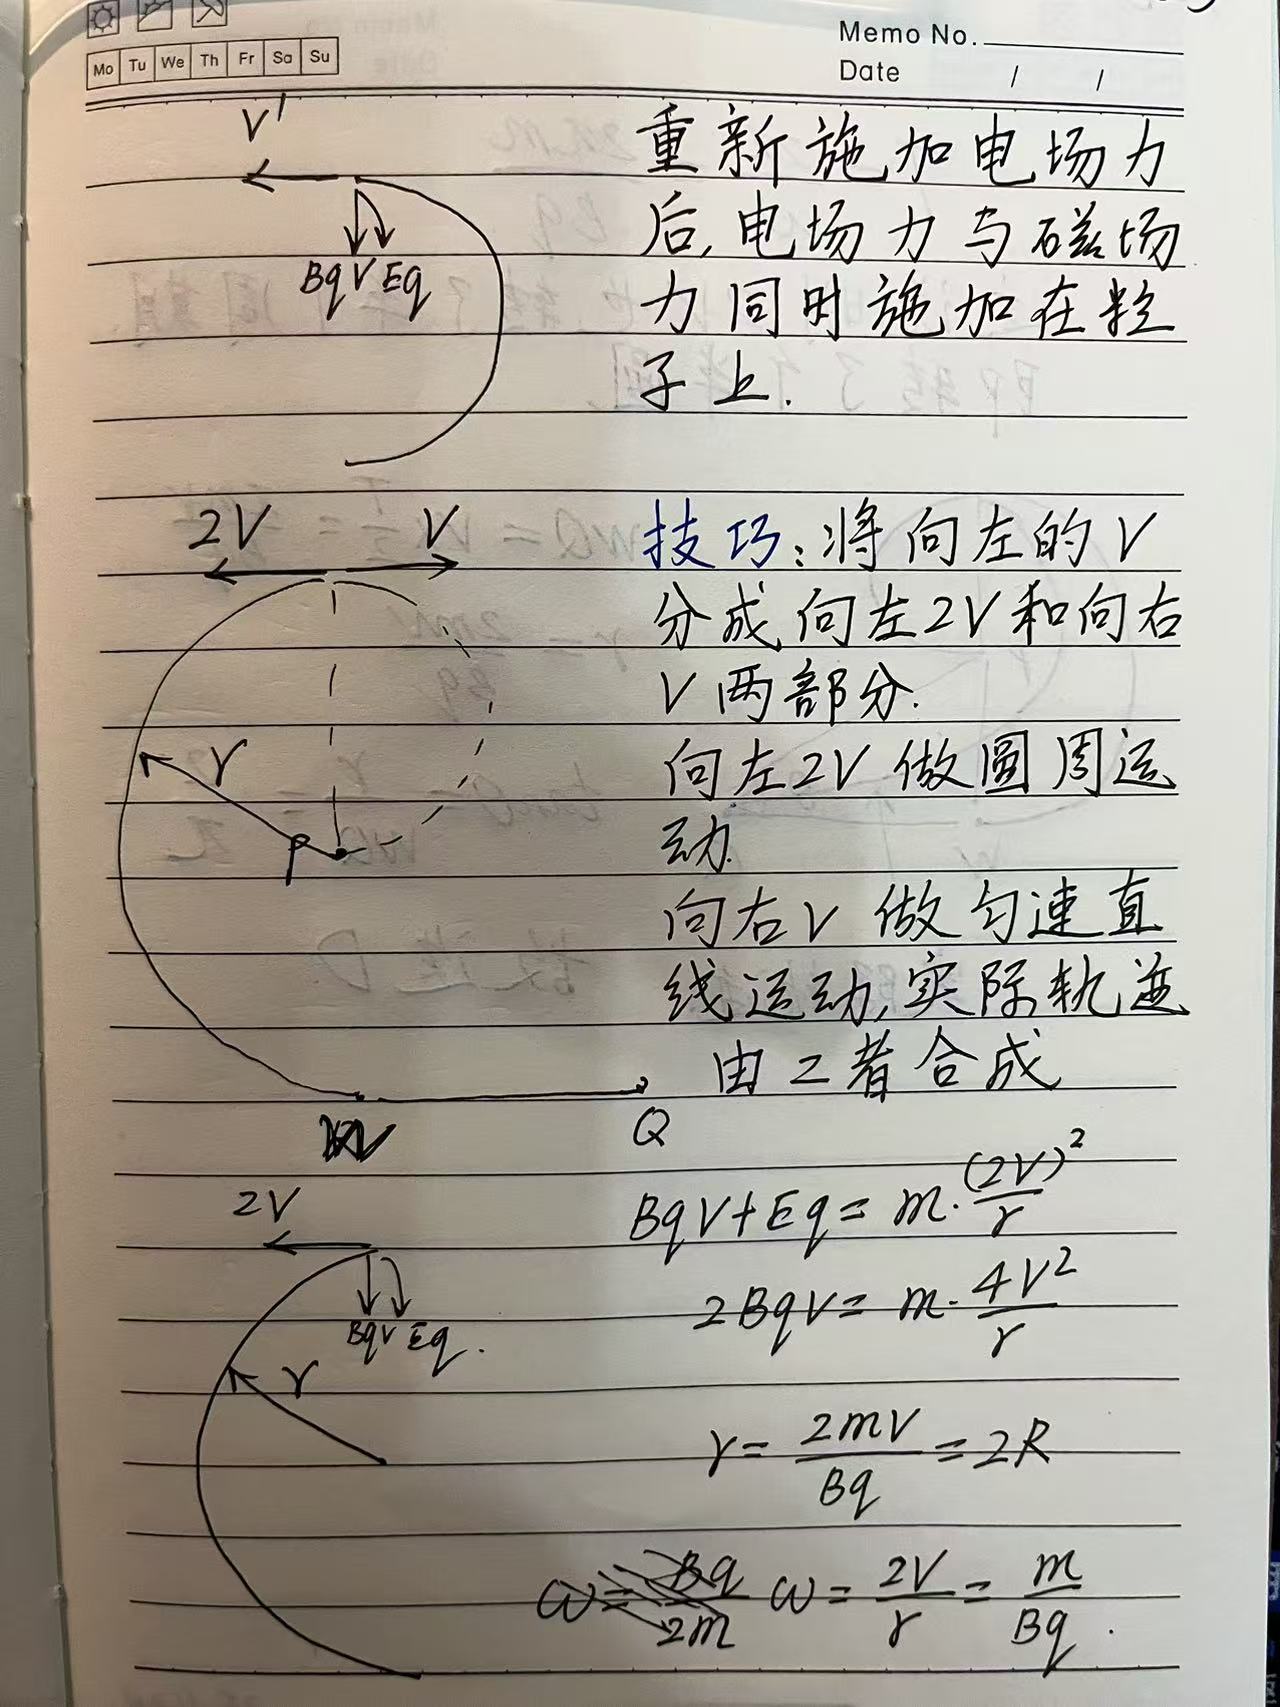 Memo No.
Mo Tu We Th Fr Sa Su
Date / /
V'
重新施加电场力
后,电场力与磁场
BqV Eq
力同时施加在粒
子上.
2V V
技巧:将向左的V
分成向左2V和向右
V两部分.
向左2V做圆周运
r
动.
P
向右V做匀速直
线运动,实际轨迹
由二者合成
Q
BqV+Eq=m·(2V)²/r
2V
2BqV=m·4V²/r
BqV Eq.
r
r=2mV/Bq=2R
ω=Bq/2m ω=2V/r=m/Bq.